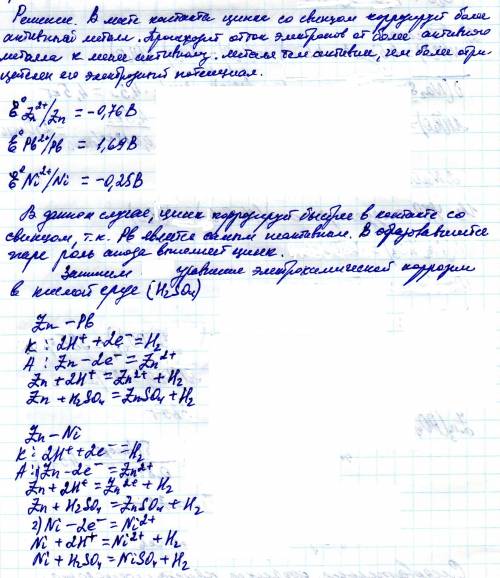 Решение. В месте контакта цинка со свинцом корродирует более
активный металл. Происходит отток электронов от более активного
металла к менее активному. Металл тем активнее, чем более отри-
цателен его электродный потенциал.
E⁰ Zn²⁺/Zn = -0,76 В
E⁰ Pb²⁺/Pb = 1,69 В
E⁰ Ni²⁺/Ni = -0,25 В
В данном случае, цинк корродирует быстрее в контакте со
свинцом, т.к. Pb является самым неактивным. В образовавшейся
паре роль анода выполняет цинк.
Запишем уравнение электрохимической коррозии
в кислой среде (H₂SO₄)
Zn - Pb
К: 2H⁺ + 2e⁻ = H₂
А: Zn - 2e⁻ = Zn²⁺
Zn + 2H⁺ = Zn²⁺ + H₂
Zn + H₂SO₄ = ZnSO₄ + H₂
Zn - Ni
К: 2H⁺ + 2e⁻ = H₂
А: 1) Zn - 2e⁻ = Zn²⁺
Zn + 2H⁺ = Zn²⁺ + H₂
Zn + H₂SO₄ = ZnSO₄ + H₂
2) Ni - 2e⁻ = Ni²⁺
Ni + 2H⁺ = Ni²⁺ + H₂
Ni + H₂SO₄ = NiSO₄ + H₂